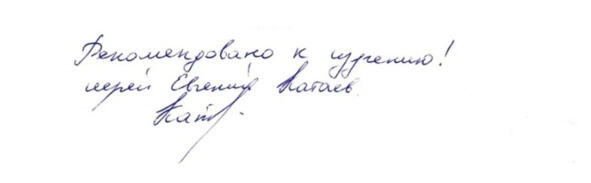 Рекомендовано к изучению!
иерей Евгений Катаев.
Кат